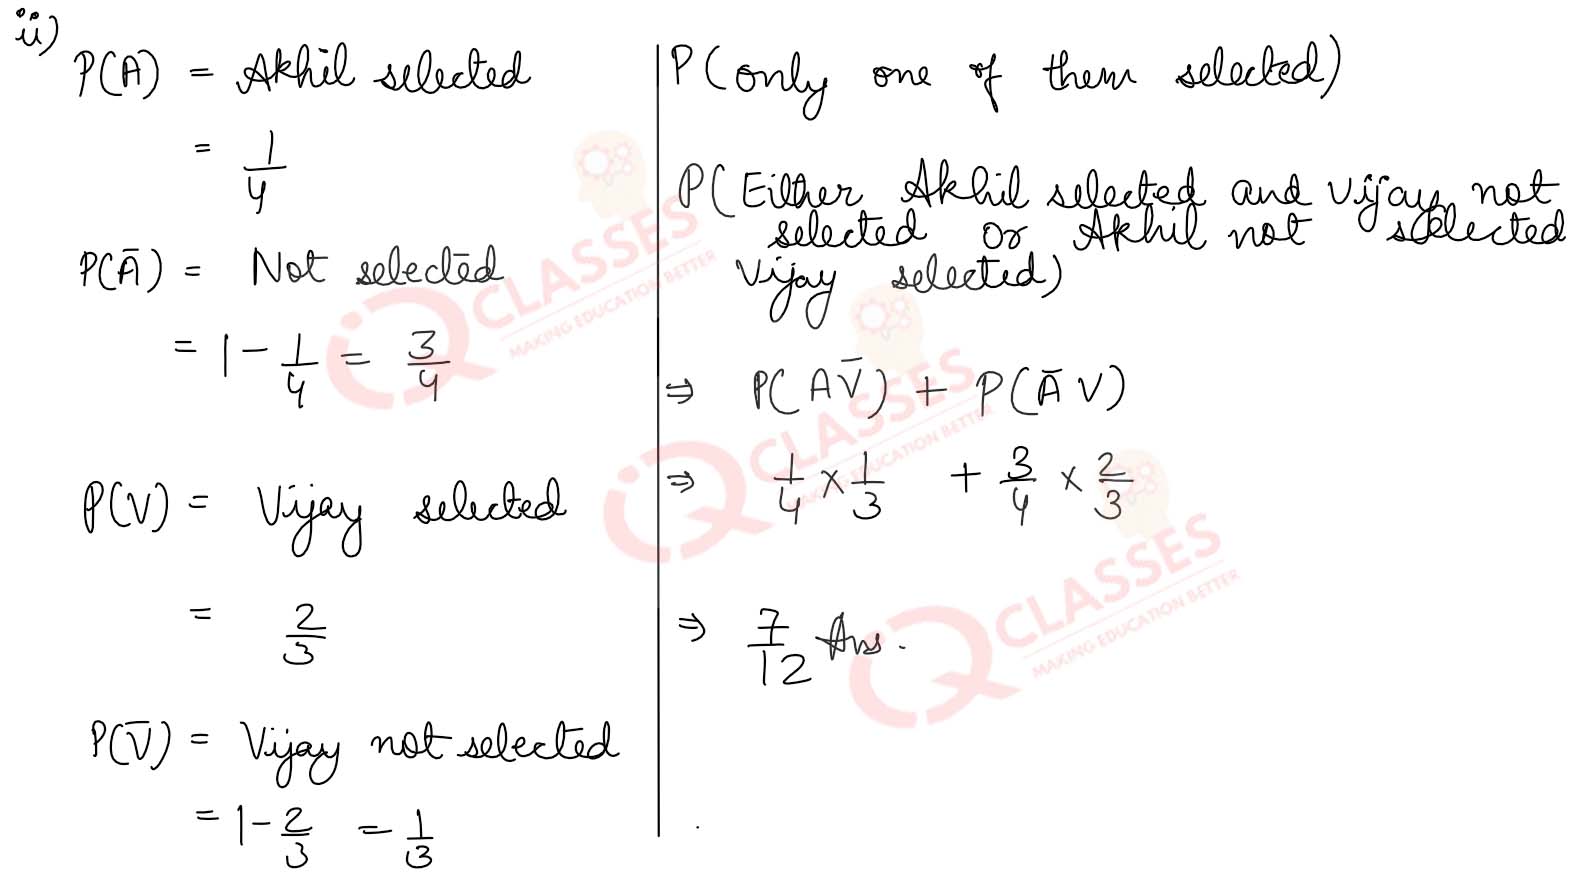 ii)
P(A) = Akhil selected
= 1/4
P(Ā) = Not selected
= 1 - 1/4 = 3/4
P(V) = Vijay selected
= 2/3
P(V̄) = Vijay not selected
= 1 - 2/3 = 1/3
P(only one of them selected)
P(Either Akhil selected and Vijay not
selected or Akhil not selected
Vijay selected)
⇒ P(AV̄) + P(ĀV)
⇒ 1/4 × 1/3 + 3/4 × 2/3
⇒ 7/12 Ans.
iQ CLASSES
MAKING EDUCATION BETTER
iQ CLASSES
MAKING EDUCATION BETTER
iQ CLASSES
MAKING EDUCATION BETTER